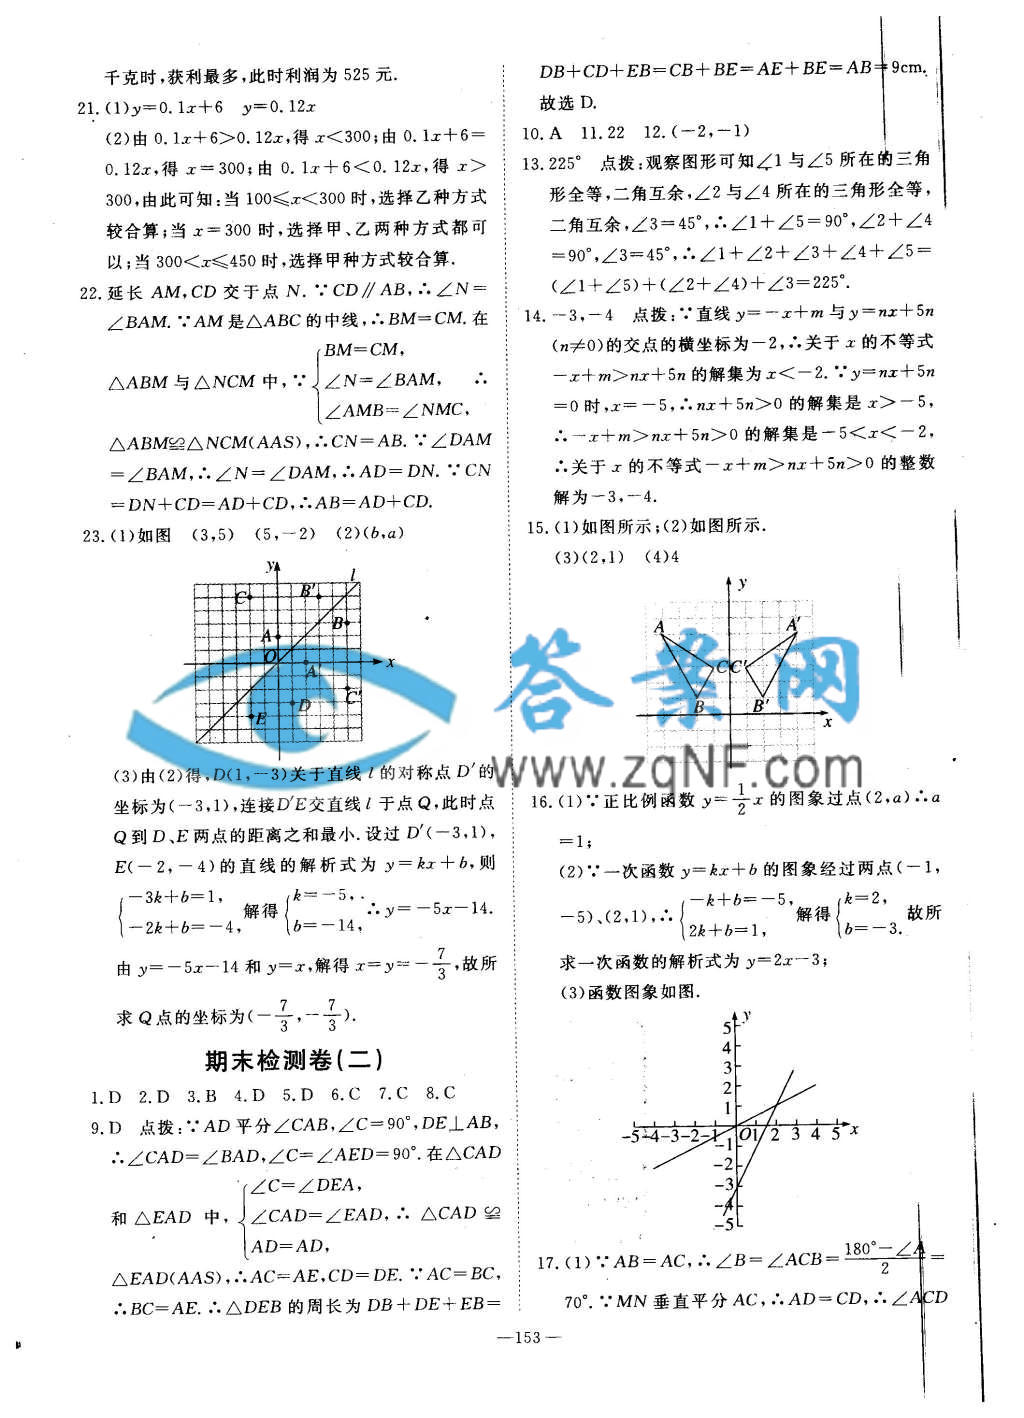 千克时,获利最多,此时利润为 525 元.
21.(1)y=0.1x+6  y=0.12x
(2)由 0.1x+6>0.12x,得 x<300;由 0.1x+6=
0.12x,得 x=300;由 0.1x+6<0.12x,得 x>
300,由此可知:当 100⩽x<300 时,选择乙种方式
较合算;当 x=300 时,选择甲、乙两种方式都可
以;当 300<x⩽450 时,选择甲种方式较合算.
22.延长 AM,CD 交于点 N.∵CD∥AB,∴∠N=
∠BAM.∵AM 是△ABC 的中线,∴BM=CM.在
△ABM 与△NCM 中,∵{BM=CM, ∠N=∠BAM, ∠AMB=∠NMC, ∴
△ABM≌△NCM(AAS),∴CN=AB.∵∠DAM
=∠BAM,∴∠N=∠DAM,∴AD=DN.∵CN
=DN+CD=AD+CD,∴AB=AD+CD.
23.(1)如图 (3,5) (5,-2) (2)(b,a)
y l
C B′
B
A
O A′ x
C′
D
E
(3)由(2)得,D(1,-3)关于直线 l 的对称点 D′的
坐标为(-3,1),连接D′E交直线 l 于点 Q,此时点
Q 到 D、E 两点的距离之和最小.设过 D′(-3,1),
E(-2,-4)的直线的解析式为 y=kx+b,则
{-3k+b=1, -2k+b=-4, 解得{k=-5, b=-14, ∴y=-5x-14.
由 y=-5x-14 和 y=x,解得 x=y=-7/3,故所
求 Q 点的坐标为(-7/3,-7/3).
期末检测卷(二)
1.D 2.D 3.B 4.D 5.D 6.C 7.C 8.C
9.D 点拨:∵AD 平分∠CAB,∠C=90°,DE⊥AB,
∴∠CAD=∠BAD,∠C=∠AED=90°.在△CAD
和 △EAD 中,{∠C=∠DEA, ∠CAD=∠EAD, AD=AD, ∴ △CAD ≌
△EAD(AAS),∴AC=AE,CD=DE.∵AC=BC,
∴BC=AE.∴△DEB 的周长为 DB+DE+EB=
DB+CD+EB=CB+BE=AE+BE=AB=9cm.
故选 D.
10.A 11.22 12.(-2,-1)
13.225° 点拨:观察图形可知∠1与∠5所在的三角
形全等,二角互余,∠2与∠4所在的三角形全等,
二角互余,∠3=45°,∴∠1+∠5=90°,∠2+∠4
=90°,∠3=45°,∴∠1+∠2+∠3+∠4+∠5=
(∠1+∠5)+(∠2+∠4)+∠3=225°.
14.-3,-4 点拨:∵直线 y=-x+m 与 y=nx+5n
(n≠0)的交点的横坐标为-2,∴关于 x 的不等式
-x+m>nx+5n 的解集为 x<-2.∵y=nx+5n
=0 时,x=-5,∴nx+5n>0 的解集是 x>-5,
∴-x+m>nx+5n>0 的解集是-5<x<-2,
∴关于 x 的不等式-x+m>nx+5n>0 的整数
解为-3,-4.
15.(1)如图所示;(2)如图所示.
(3)(2,1) (4)4
y
A A′
C C′
B B′
x
答案网
www.zqNF.com
16.(1)∵正比例函数 y=1/2x 的图象过点(2,a)∴a
=1;
(2)∵一次函数 y=kx+b 的图象经过两点(-1,
-5)、(2,1),∴{-k+b=-5, 2k+b=1, 解得{k=2, b=-3. 故所
求一次函数的解析式为 y=2x-3;
(3)函数图象如图.
y
5
4
3
2
1
-5-4-3-2-1 O 1 2 3 4 5 x
-1
-2
-3
-4
-5
17.(1)∵AB=AC,∴∠B=∠ACB=(180°-∠A)/2=
70°.∵MN 垂直平分 AC,∴AD=CD,∴∠ACD
—153—